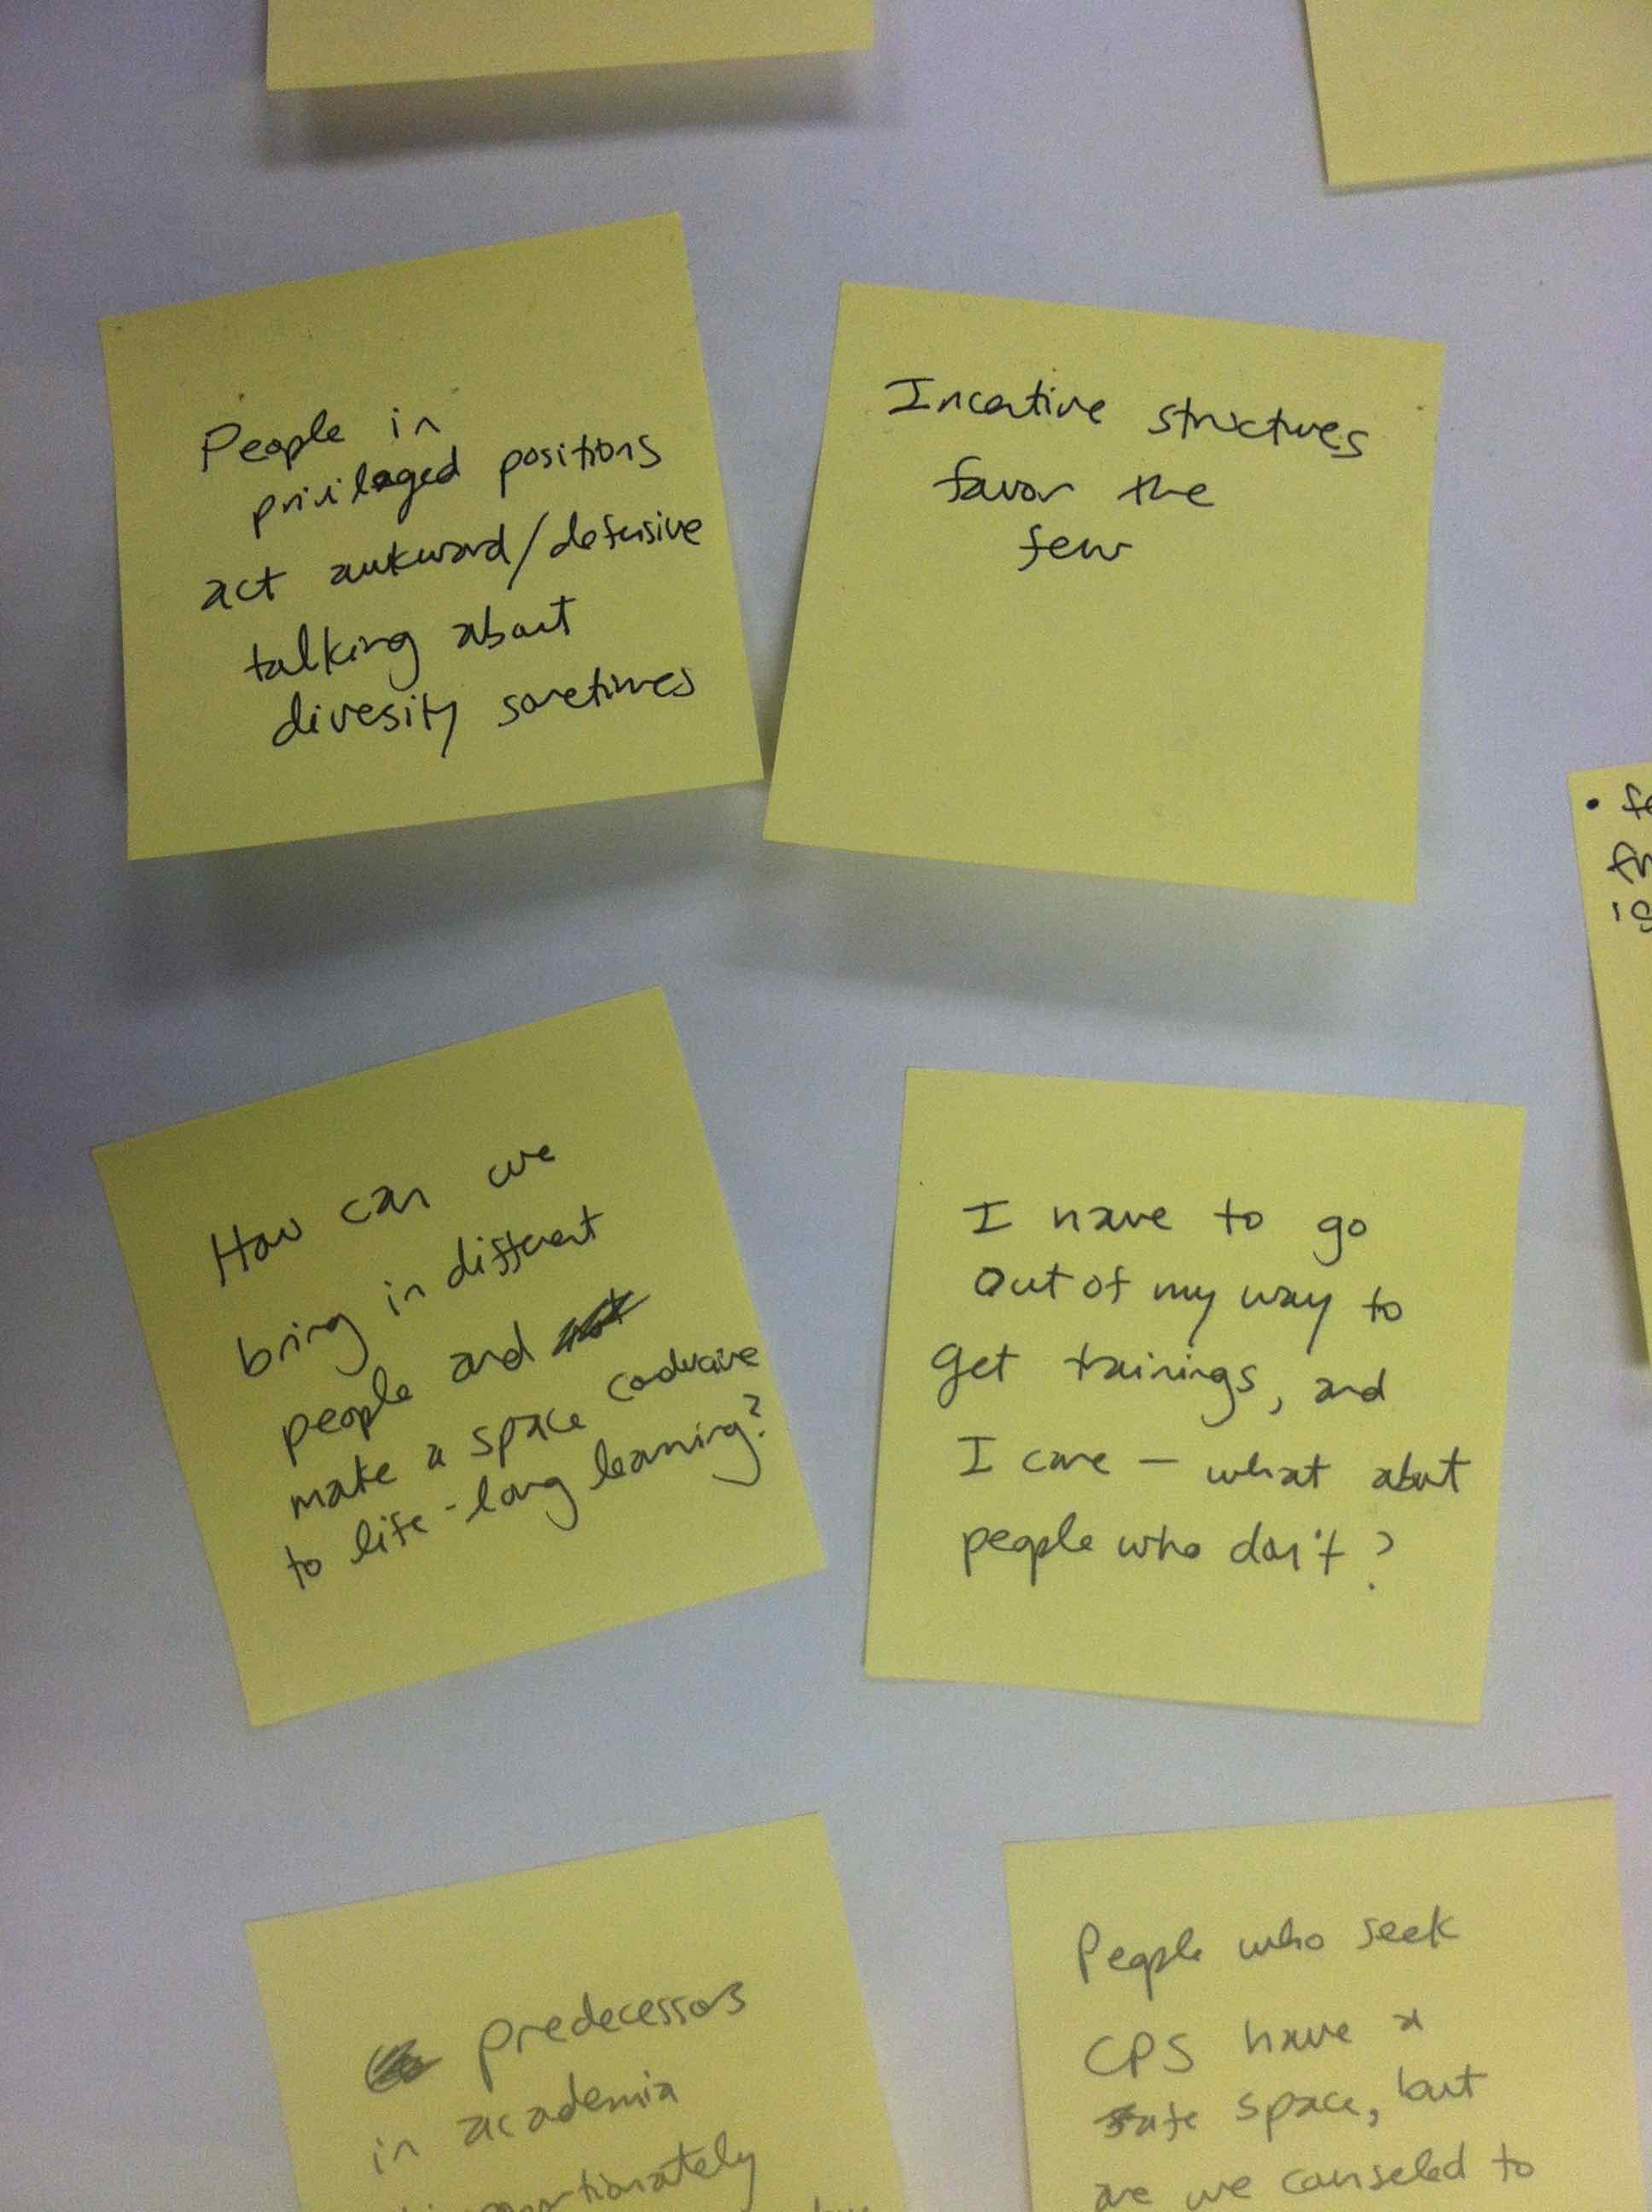 People in
privilaged positions
act awkward/defensive
talking about
divesity sometimes
Incentive structures
favor the
few
How can we
bring in different
people and
make a space conducive
to life-long learning?
I have to go
out of my way to
get trainings, and
I care – what about
people who don't?
predecessors
in academia
People who seek
CPS have a
safe space, but
are we counseled to